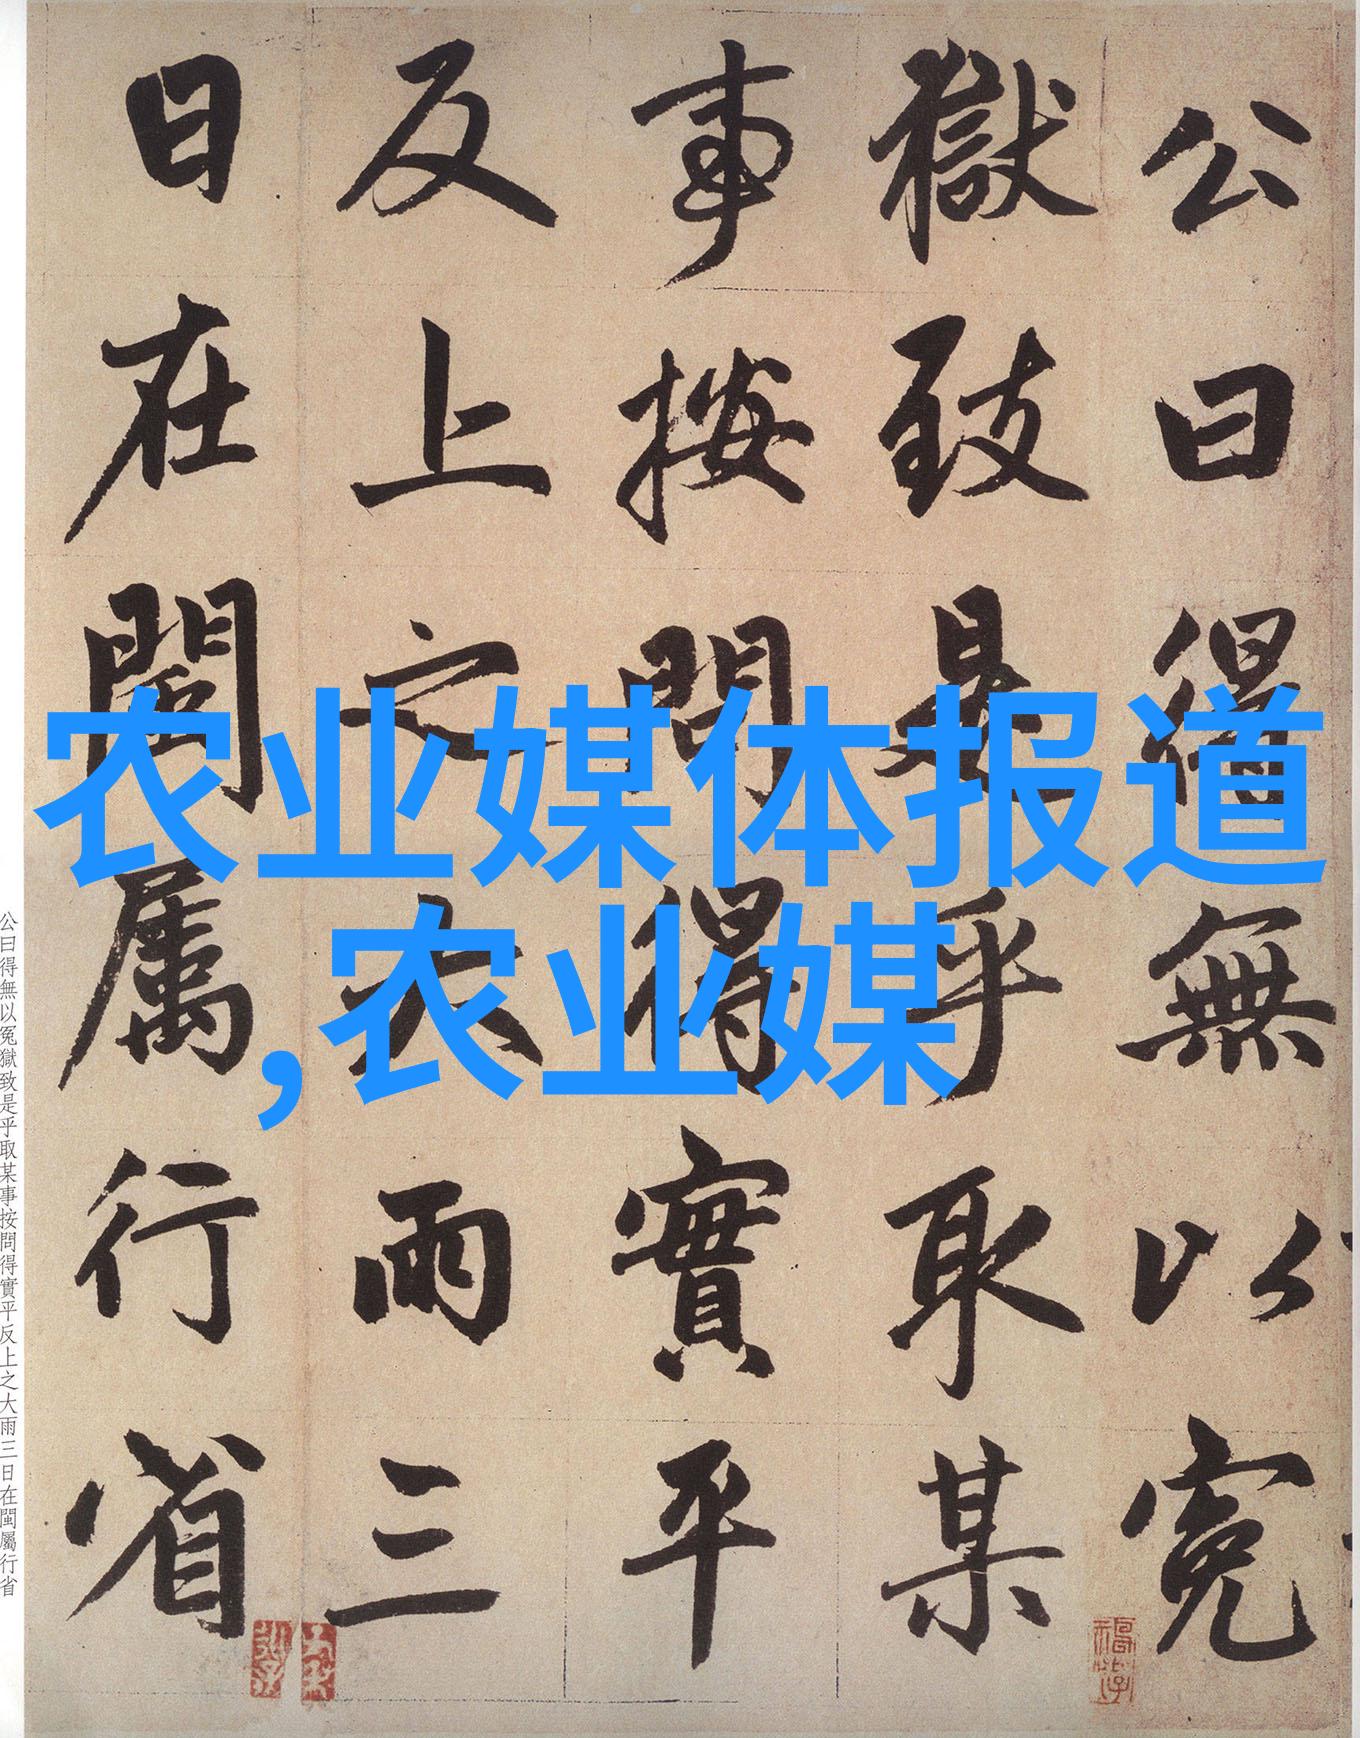 公曰得無以冤
獄致是乎取某
事按問得實平
反上之大雨三
日在閩属行省
农业媒体报道
,农业媒
公曰得無以冤獄致是乎取某事按問得實平反上之大雨三日在閩屬行省